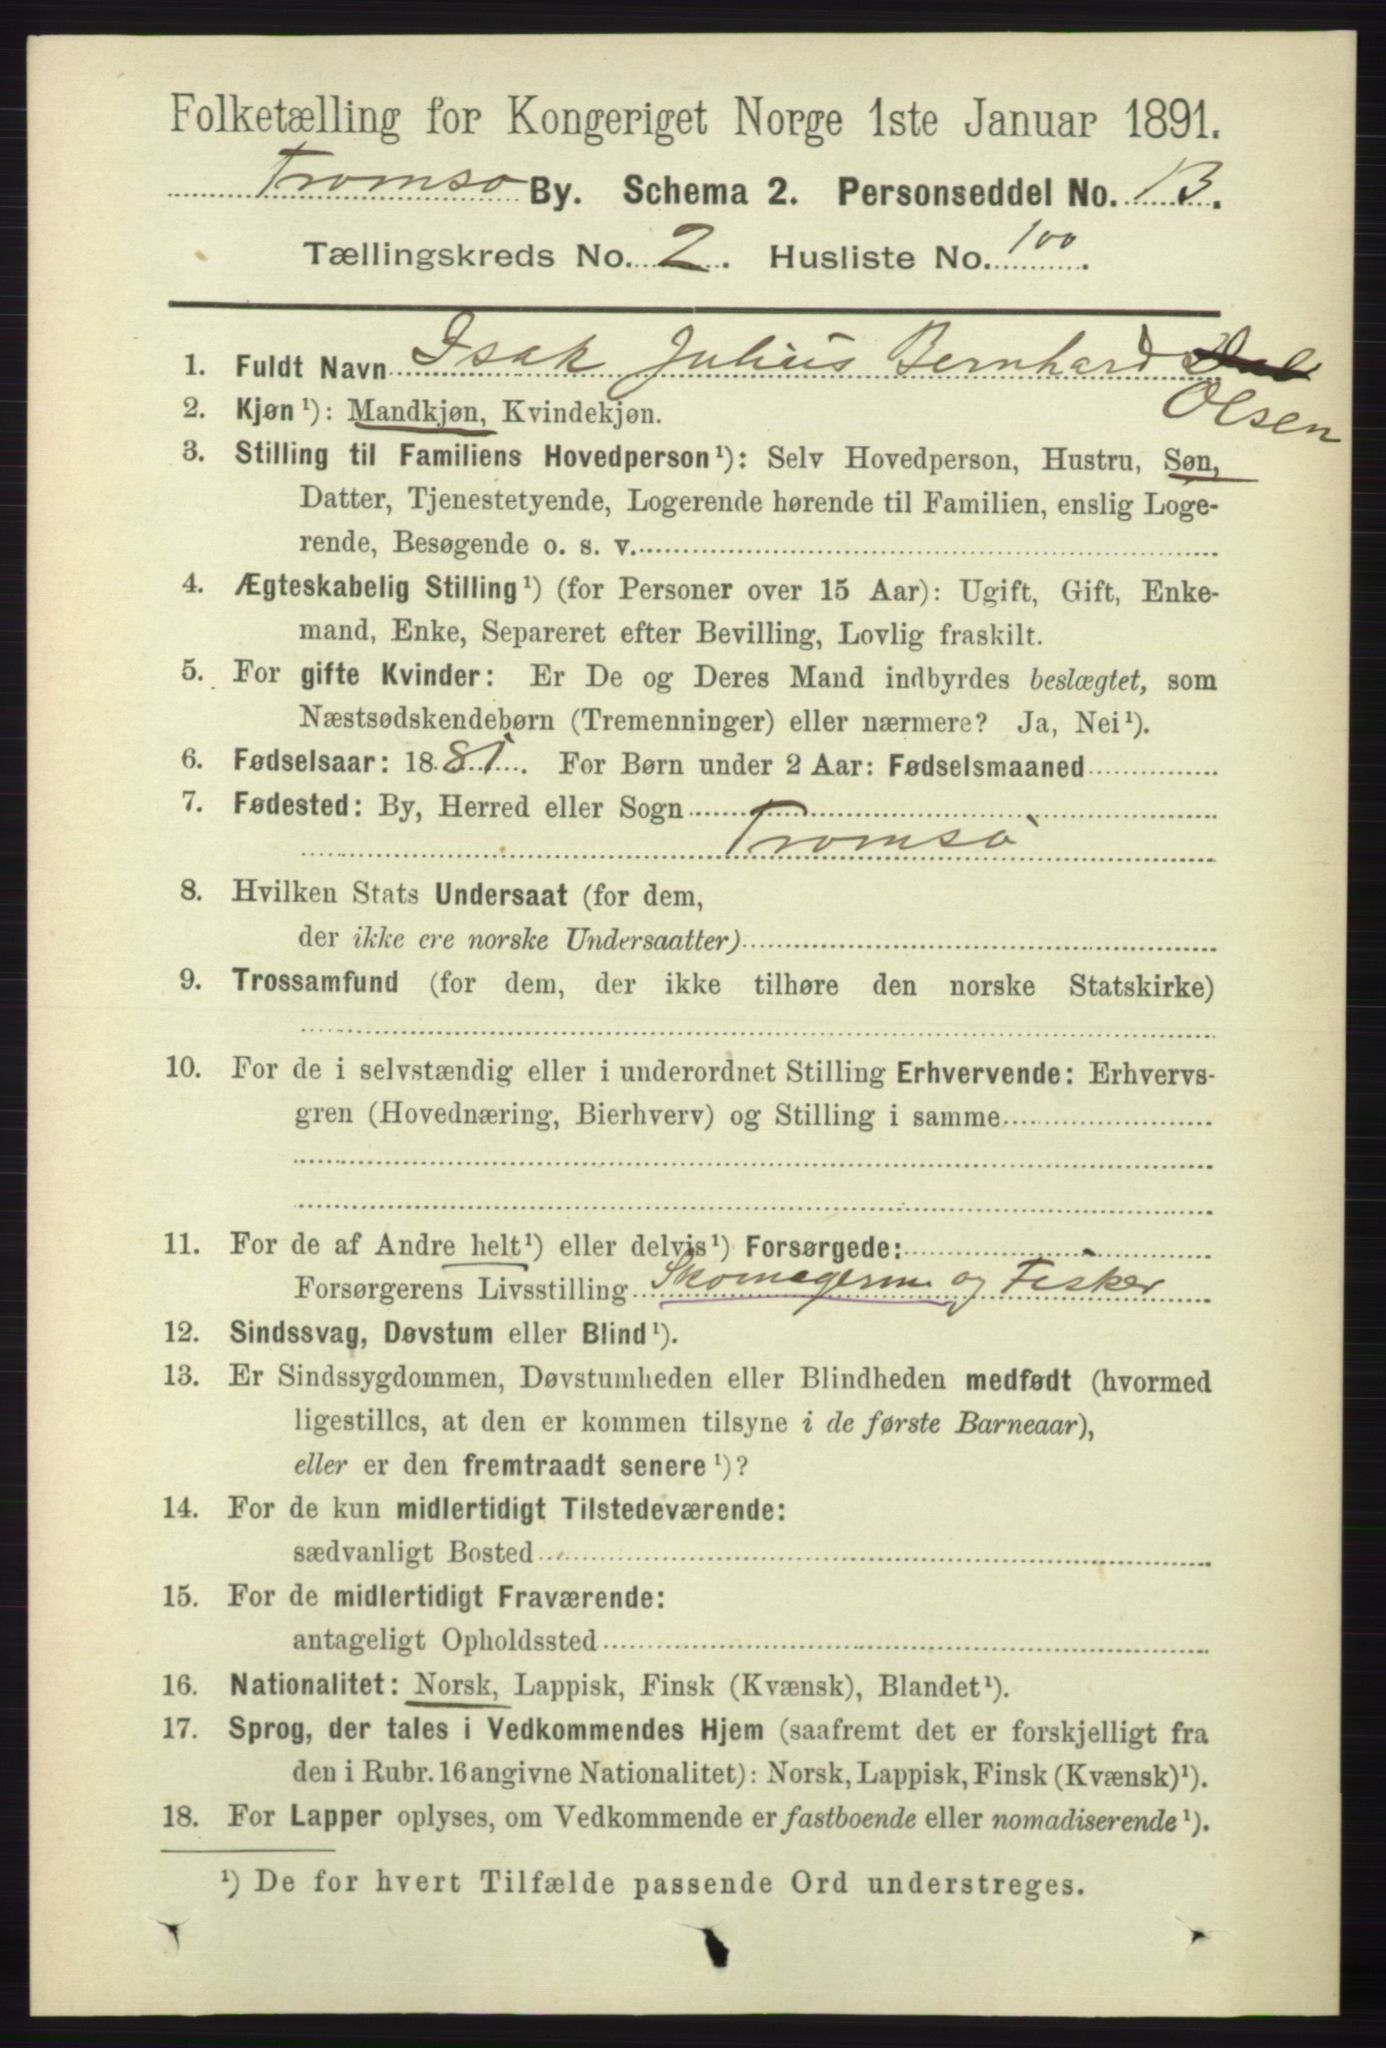 Folketælling for Kongeriget Norge 1ste Januar 1891.
Tromsø By. Schema 2. Personseddel No. 13.
Tællingskreds No. 2. Husliste No. 100.
1. Fuldt Navn Isak Julius Bernhard
Olsen
2. Kjøn ¹): Mandkjøn, Kvindekjøn.
3. Stilling til Familiens Hovedperson ¹): Selv Hovedperson, Hustru, Søn,
Datter, Tjenestetyende, Logerende hørende til Familien, enslig Loge-
rende, Besøgende o. s. v.
4. Ægteskabelig Stilling ¹) (for Personer over 15 Aar): Ugift, Gift, Enke-
mand, Enke, Separeret efter Bevilling, Lovlig fraskilt.
5. For gifte Kvinder: Er De og Deres Mand indbyrdes beslægtet, som
Næstsødskendebørn (Tremenninger) eller nærmere? Ja, Nei ¹).
6. Fødselsaar: 1881. For Børn under 2 Aar: Fødselsmaaned
7. Fødested: By, Herred eller Sogn
Tromsø
8. Hvilken Stats Undersaat (for dem,
der ikke ere norske Undersaatter)
9. Trossamfund (for dem, der ikke tilhøre den norske Statskirke)
10. For de i selvstændig eller i underordnet Stilling Erhvervende: Erhvervs-
gren (Hovednæring, Bierhverv) og Stilling i samme
11. For de af Andre helt ¹) eller delvis ¹) Forsørgede:
Forsørgerens Livsstilling og Fisker
12. Sindssvag, Døvstum eller Blind ¹).
13. Er Sindssygdommen, Døvstumheden eller Blindheden medfødt (hvormed
ligestilles, at den er kommen tilsyne i de første Barneaar),
eller er den fremtraadt senere ¹)?
14. For de kun midlertidigt Tilstedeværende:
sædvanligt Bosted
15. For de midlertidigt Fraværende:
antageligt Opholdssted
16. Nationalitet: Norsk, Lappisk, Finsk (Kvænsk), Blandet ¹).
17. Sprog, der tales i Vedkommendes Hjem (saafremt det er forskjelligt fra
den i Rubr. 16 angivne Nationalitet): Norsk, Lappisk, Finsk (Kvænsk) ¹).
18. For Lapper oplyses, om Vedkommende er fastboende eller nomadiserende ¹).
¹) De for hvert Tilfælde passende Ord understreges.